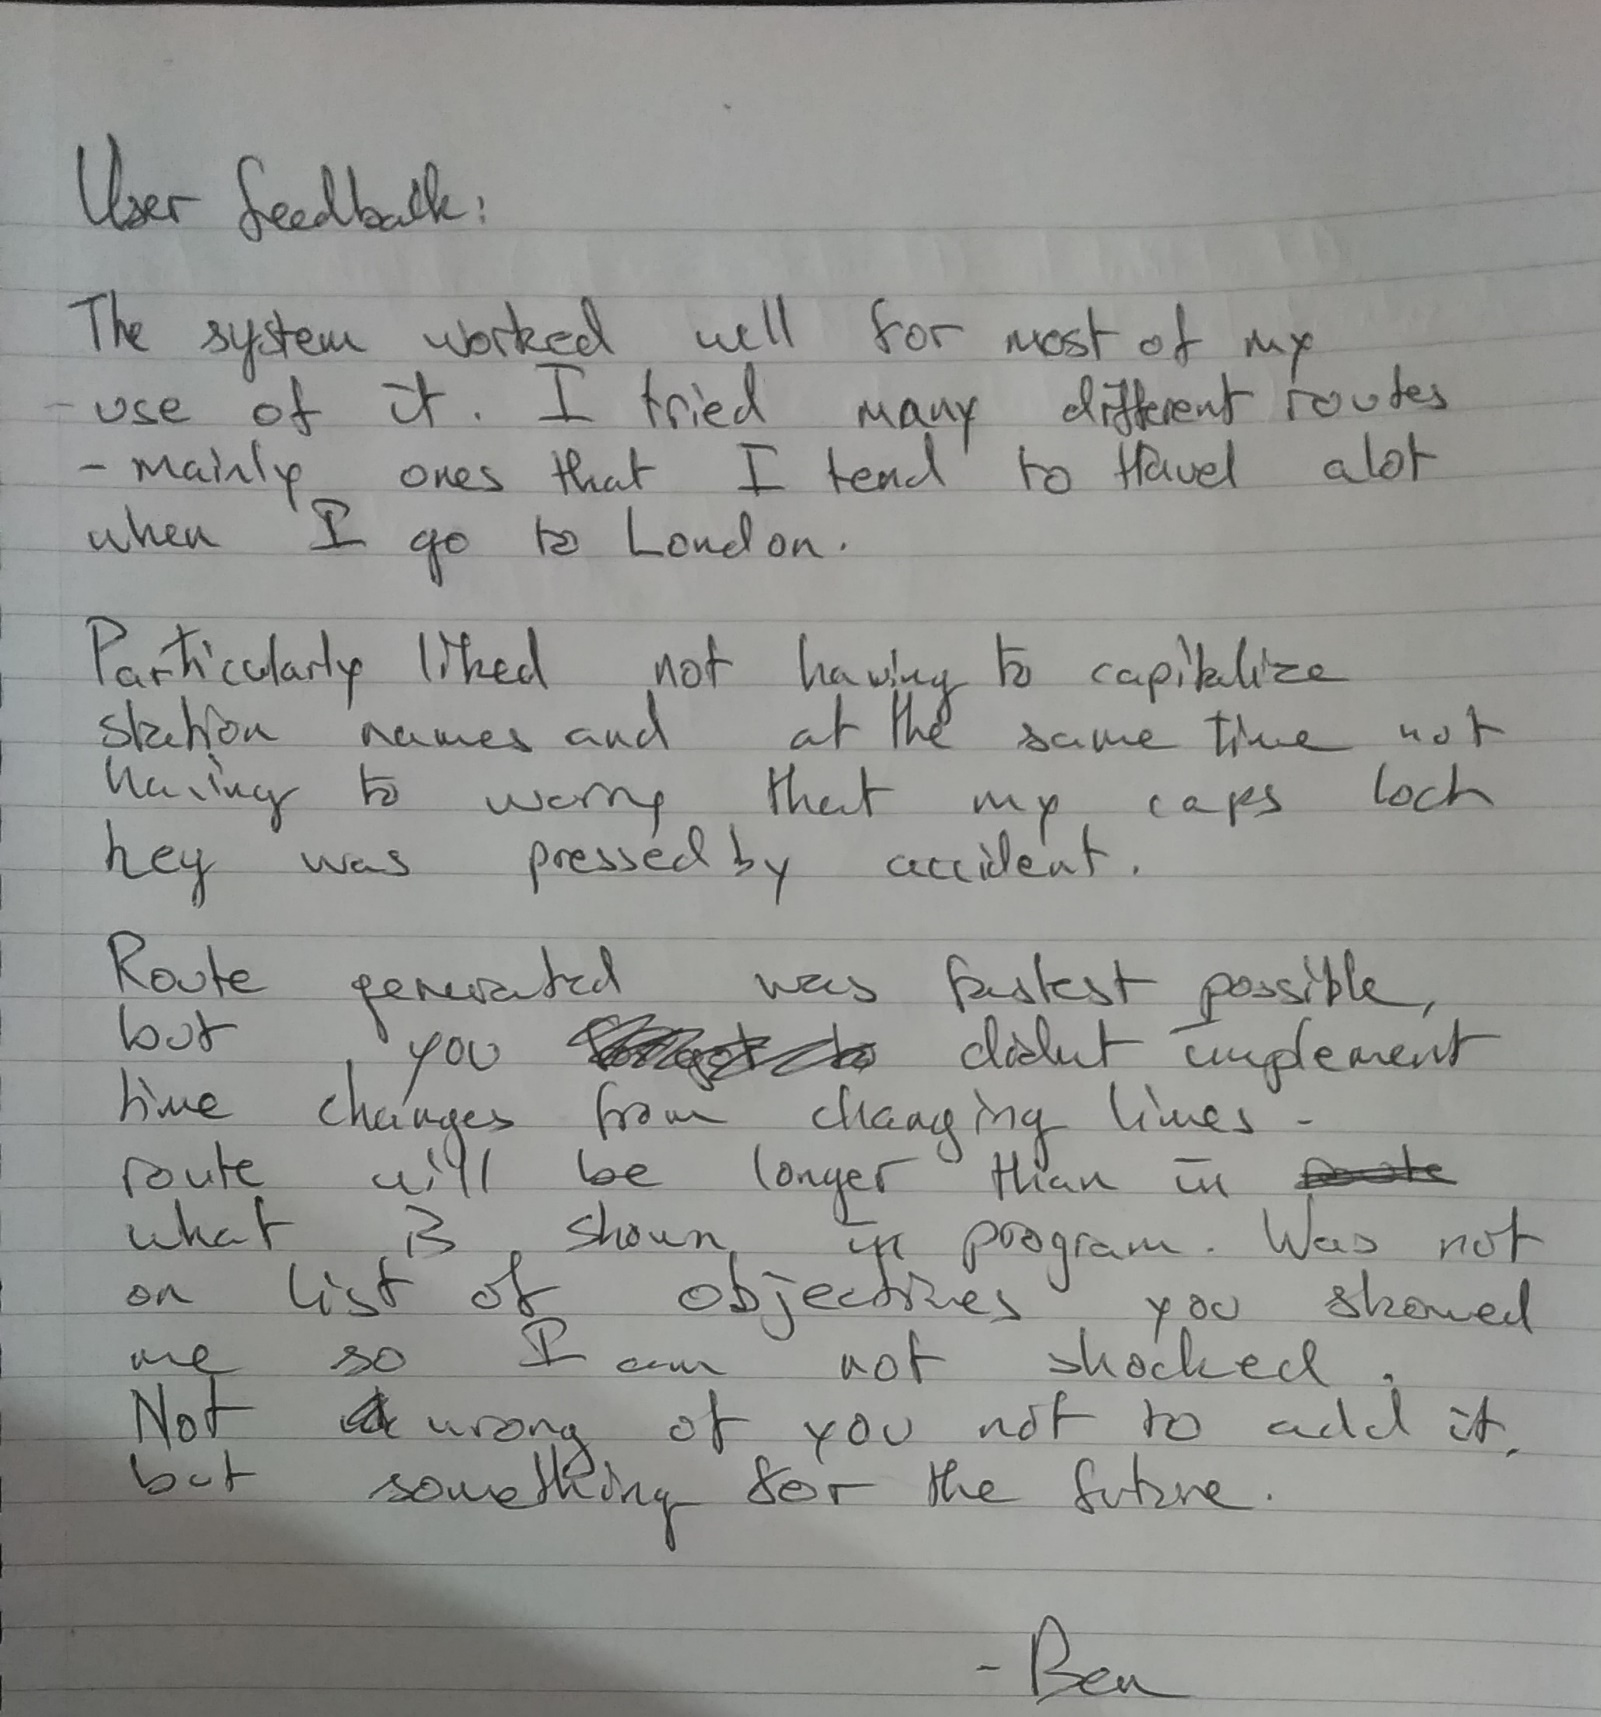 User feedback:
The system worked well for most of my
use of it. I tried many different routes
- mainly ones that I tend to travel alot
when I go to London.
Particularly liked not having to capitalize
station names and at the same time not
having to worry that my caps lock
key was pressed by accident.
Route generated was fastest possible,
but you didnt implement
time changes from changing lines -
route will be longer than in route
what is shown in program. Was not
on list of objectives you showed
me so I am not shocked.
Not wrong of you not to add it,
but something for the future.
- Ben